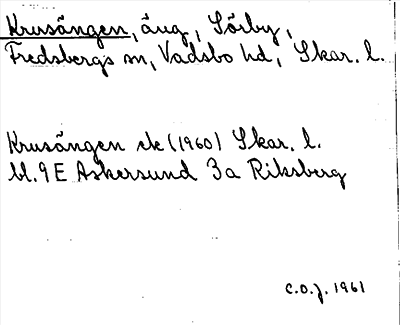 Krusängen, äng, Sörby,
Fredsbergs sn, Vadsbo hd, Skar. l.
Krusängen ek (1960) Skar. l.
bl. 9E Askersund 3a Riksberg
C.O.J. 1961